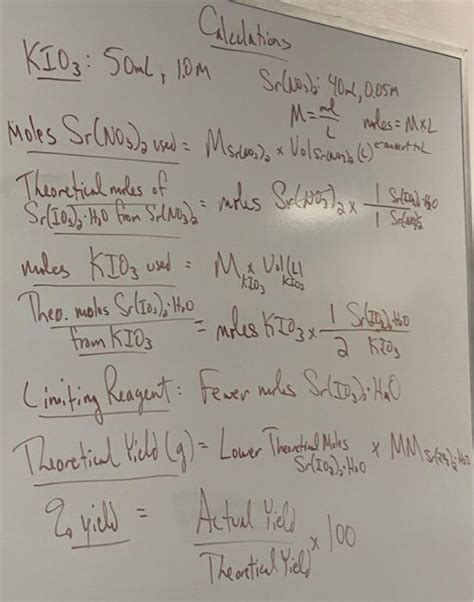 Calculations
KIO₃: 50mL, 1.0M
Sr(NO₃)₂: 40mL, 0.05M
M = mol/L moles = M×L
Moles Sr(NO₃)₂ used = M Sr(NO₃)₂ × Vol Sr(NO₃)₂ (L) convert to L
Theoretical moles of
Sr(IO₃)₂·H₂O from Sr(NO₃)₂ = moles Sr(NO₃)₂ × 1 Sr(IO₃)₂·H₂O / 1 Sr(NO₃)₂
moles KIO₃ used = M KIO₃ × Vol(L) KIO₃
Theo. moles Sr(IO₃)₂·H₂O
from KIO₃ = moles KIO₃ × 1 Sr(IO₃)₂·H₂O / 2 KIO₃
Limiting Reagent: Fewer moles Sr(IO₃)₂·H₂O
Theoretical Yield (g) = Lower Theoretical Moles Sr(IO₃)₂·H₂O × MM Sr(IO₃)₂·H₂O
% yield = Actual Yield / Theoretical Yield × 100